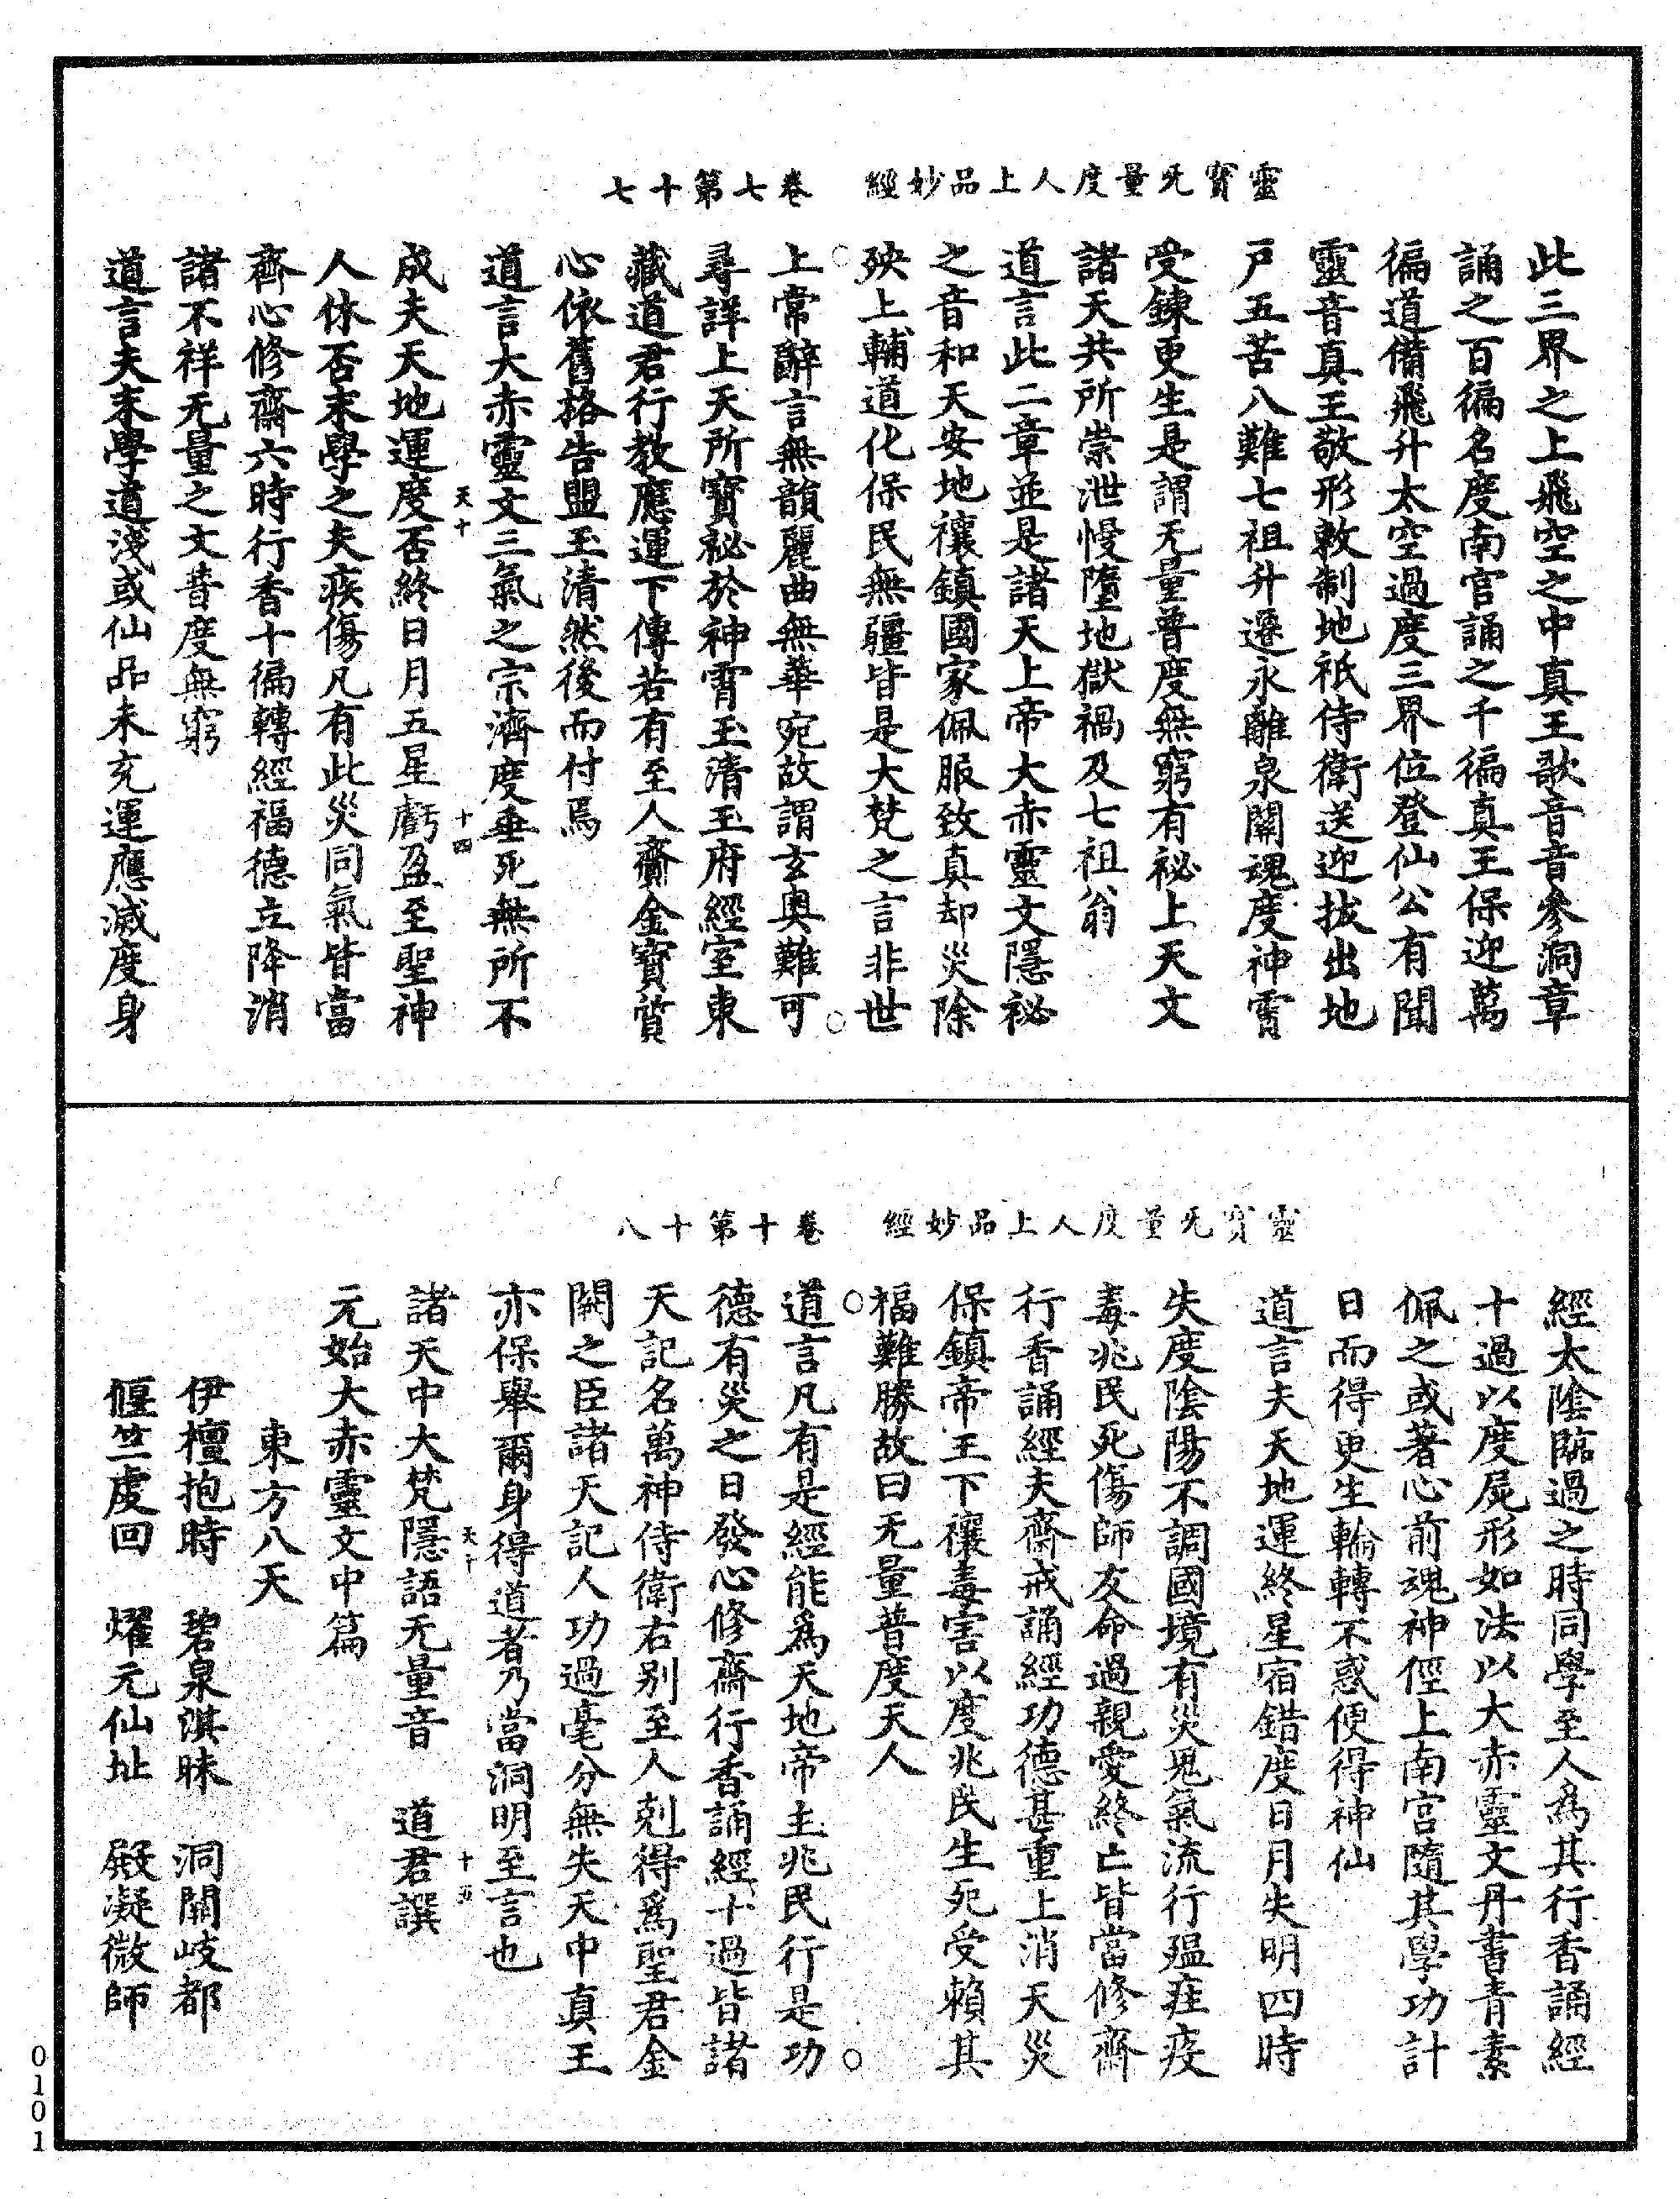 靈寶无量度人上品妙經　卷七第十七
此三界之上飛空之中真王歌音音參洞章
誦之百徧名度南宫誦之千徧真王保迎萬
徧道備飛升太空過度三界位登仙公有聞
靈音真王敬形敕制地祇侍衛送迎拔出地
戸五苦八難七祖升遷永離泉關魂度神霄
受鍊更生是謂无量普度無窮有祕上天文
諸天共所崇泄慢墮地獄禍及七祖翁
道言此二章並是諸天上帝大赤靈文隱祕
之音和天安地禳鎮國家佩服致真却災除
殃上輔道化保民無疆皆是大梵之言非世
上常辭言無韻麗曲無華宛故謂玄奥難可
尋詳上天所寶祕於神霄玉清玉府經室東
藏道君行教應運下傳若有至人齎金寶質
心依舊格告盟玉清然後而付焉
道言大赤靈文三氣之宗濟度垂死無所不
天十　十四
成夫天地運度否終日月五星虧盈至聖神
人休否末學之夫疾傷凡有此災同氣皆當
齋心修齋六時行香十徧轉經福德立降消
諸不祥无量之文普度無窮
道言夫末學道淺或仙品未充運應滅度身
靈寶无量度人上品妙經　卷十第十八
經太陰臨過之時同學至人為其行香誦經
十過以度屍形如法以大赤靈文丹書青素
佩之或著心前魂神徑上南宫隨其學功計
日而得更生輪轉不惑便得神仙
道言夫天地運終星宿錯度日月失明四時
失度陰陽不調國境有災鬼氣流行瘟疰疫
毒兆民死傷師友命過親愛終亡皆當修齋
行香誦經夫齋戒誦經功德甚重上消天災
保鎮帝王下禳毒害以度兆民生死受賴其
福難勝故曰无量普度天人
道言凡有是經能為天地帝主兆民行是功
德有災之日發心修齋行香誦經十過皆諸
天記名萬神侍衛右别至人剋得為聖君金
闕之臣諸天記人功過毫分無失天中真王
亦保舉爾身得道者乃當洞明至言也
天十　十五
諸天中大梵隱語无量音　道君譔
元始大赤靈文中篇
東方八天
伊檀抱時　碧泉淇昧　洞關岐都
偃竺虔回　燿元仙址　殿凝微師
0101